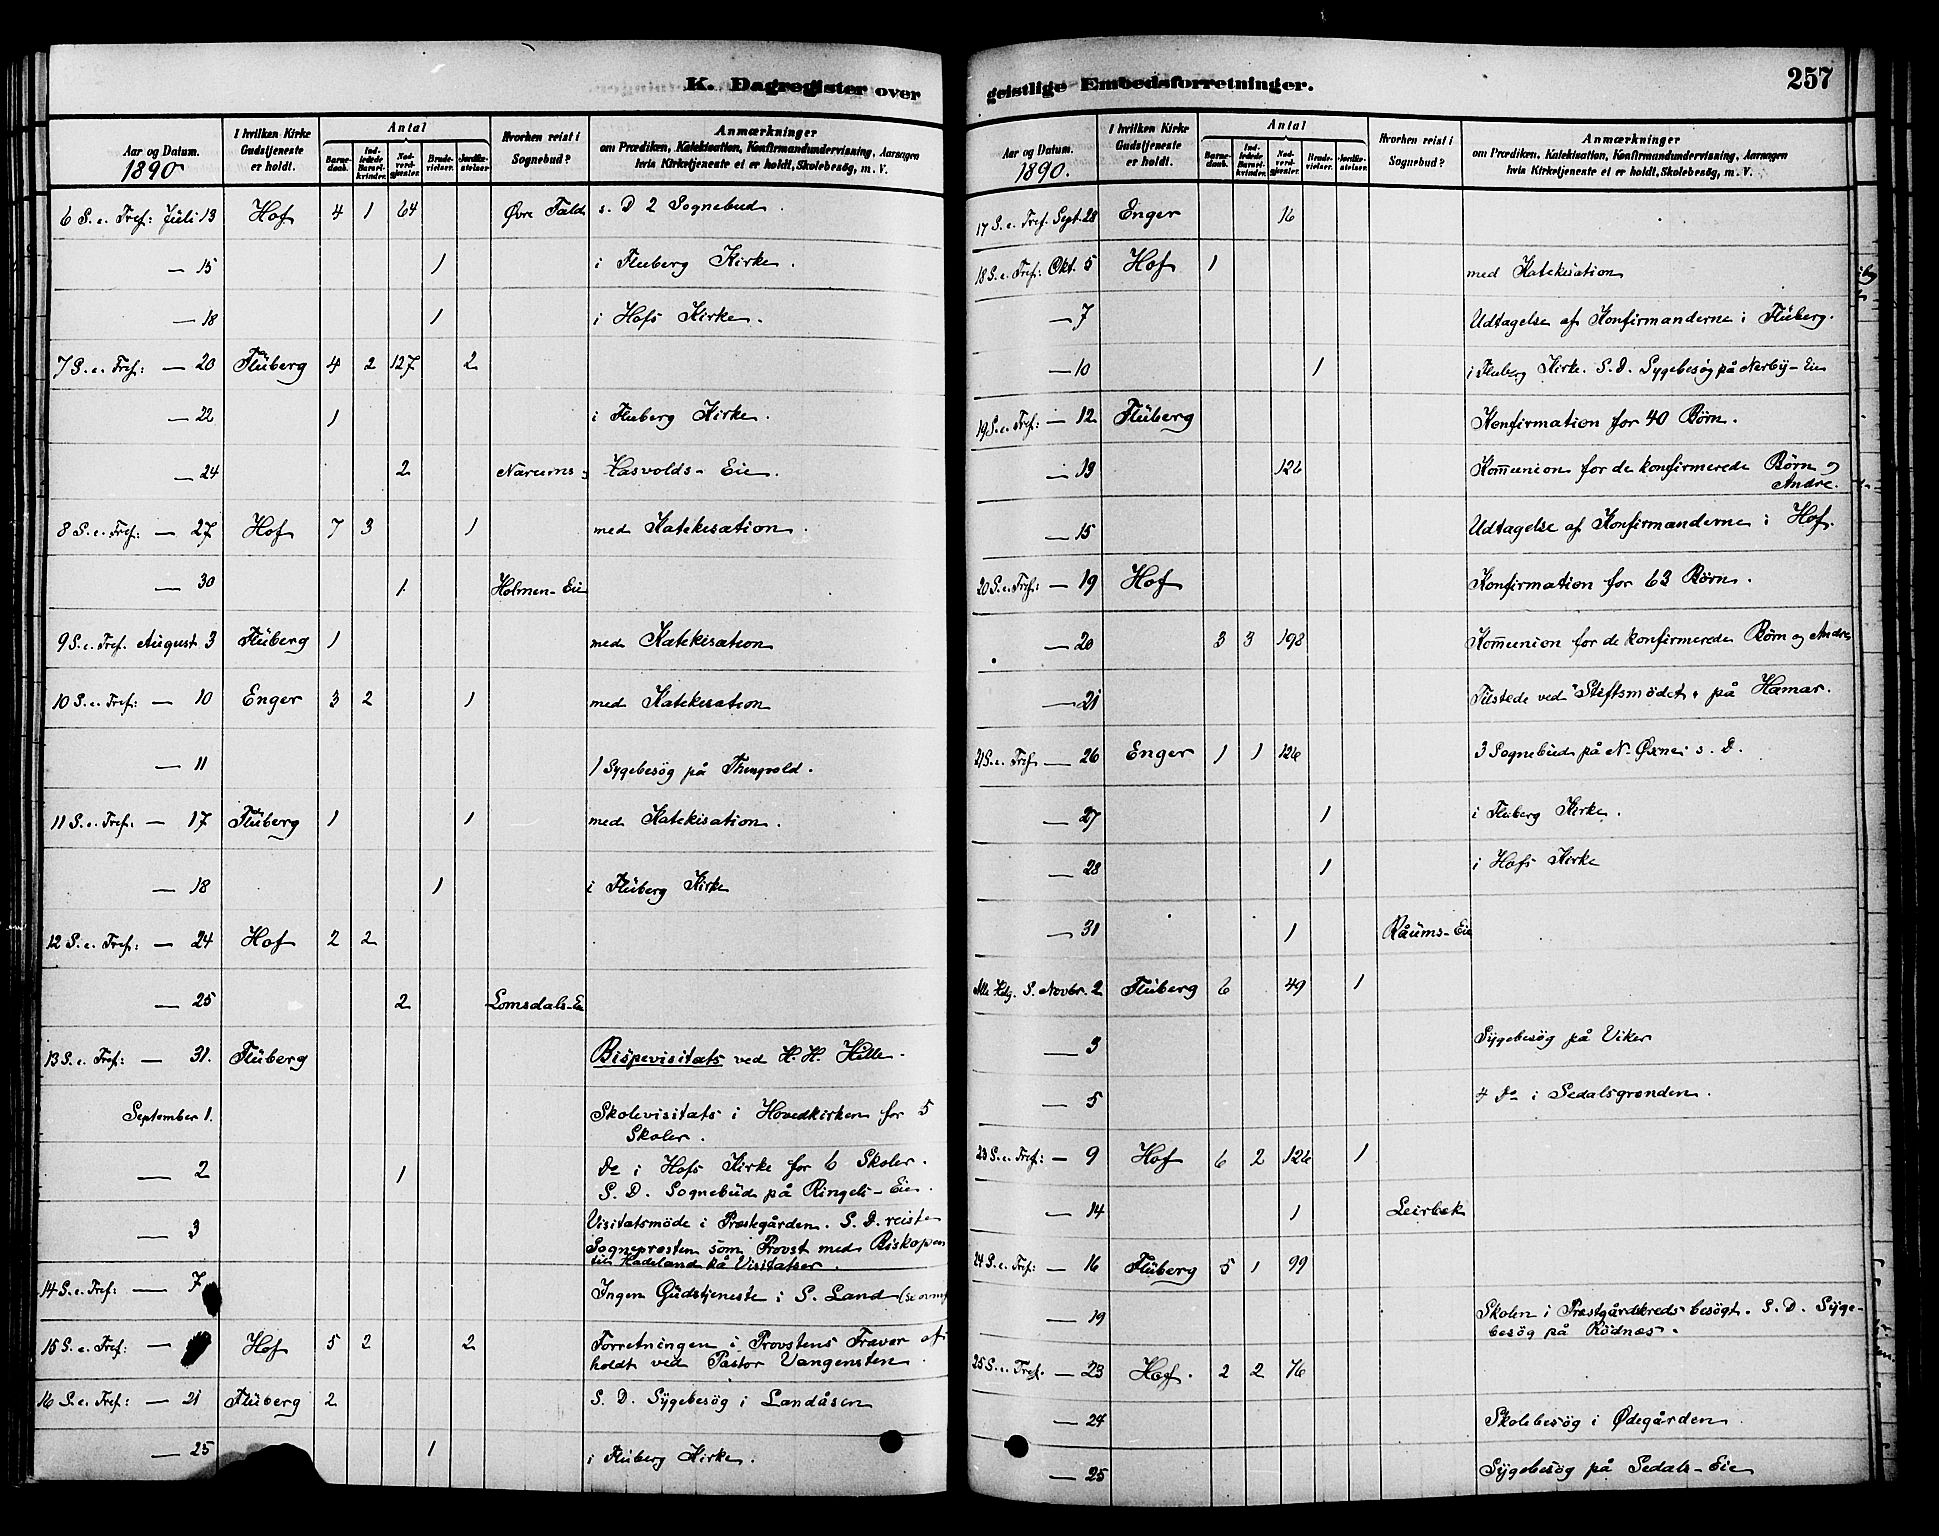 K. Dagregister over
Aar og Datum.
1890
I hvilken Kirke Gudstjeneste er holdt.
Antal
Barne-daab.
Ind-ledede Barsel-kvinder.
Nad-verd-gjæster.
Brude-vielser.
Jordfæ-stelser
Hvorhen reist i Sognebud?
Anmærkninger
om Prædiken, Katekisation, Konfirmandundervisning, Aarsagen
hvis Kirketjeneste ei er holdt, Skolebesøg, m. V.
6 S. e. Tref: Juli 13 Hof 4 1 64 Øvre s. D 2 Sognebud.
— 15 1 i Fluberg Kirke.
— 18 1 i Hofs Kirke.
7 S. e. Tref: — 20 Fluberg 4 2 127 2
— 22 1 i Fluberg Kirke.
— 24 2 Narums- Hasvolds-Eie.
8 S. e. Tref: — 27 Hof 7 3 1 med Katekisation.
— 30 1 Holmen-Eie
9 S. e. Tref. August 3 Fluberg 1 med Katekisation
10 S. e. Tref: — 10 Enger 3 2 1 med Katekisation
— 11 1 Sygebesög på
11 S. e. Tref: — 17 Fluberg 1 1 med Katekisation.
— 18 1 i Fluberg Kirke
12 S. e. Tref: — 24 Hof 2 2
— 25 2 Lomsdals-Eie
13 S. e. Tref: — 31. Fluberg Bispevisitats ved H. H. Hille.
September 1. Skolevisitats i Hovedkirken for 5
Skoler.
— 2 1 Do i Hofs Kirke for 6 Skoler.
S. D. Sognebud på Ringels-Eie.
— 3 Visitatsmöde i Præstegården. S. D. reiste
Sognepræsten som Provst med Biskopen
til Hadeland på Visitatser.
14 S. e. Tref: — 7 Ingen Gudstjeneste i S. Land (se ovenf
15 S. e. Tref: — Hof 5 2 2 Forretningen i Provstens Fravær af-
holdt ved Pastor Vangensten.
16 S. e. Tref: — 21 Fluberg 2 S. D. Sygebesög i Landåsen
— 25 1 i Fluberg Kirke.
geistlige Embedsforretninger.
257
Aar og Datum.
1890.
I hvilken Kirke Gudstjeneste er holdt.
Antal
Barne-daab.
Ind-ledede Barsel-kvinder.
Nad-verd-gjæster.
Brude-vielser.
Jordfæ-stelser
Hvorhen reist i Sognebud?
Anmærkninger
om Prædiken, Katekisation, Konfirmandundervisning, Aarsagen
hvis Kirketjeneste ei er holdt, Skolebesøg, m. V.
17 S. e. Tref. Sept. 28 Enger 16
18 S. e. Tref: Okt. 5 Hof 1 med Katekisation
— 7 Udtagelse af Konfirmanderne i Fluberg.
— 10 1 i Fluberg Kirke. S. D. Sygebesög på Nerby-Eie
19 S. e. Tref: — 12 Fluberg Konfirmation for 40 Börn.
— 13 126 Kommunion for de konfirmerede Börn og
Andre.
— 15 Udtagelse af Konfirmanderne i Hof.
20 S. e. Tref: — 19 Hof Konfirmation for 63 Börn.
— 20 3 3 198 Kommunion for de konfirmerede Börn og Andre
— 21 Tilstede ved "Stiftsmödet" på Hamar.
21 S. e. Tref — 26 Enger 1 1 126 3 Sognebud på N. Øxne s. D.
— 27 1 i Fluberg Kirke.
— 28 1 i Hofs Kirke
— 31 1 Råums-Eie
Alle Helg. S. Novbr. 2 Fluberg 6 49 1
— 3 Sygebesög på Viker
— 5 4 Do i Sedalsgrenden.
23 S. e. Tref: — 9 Hof 6 2 126 1
— 14 1 Leirbæk
24 S. e. Tref: — 16 Fluberg 5 1 99
— 19 Skolen i Præstgårdkreds besögt. S. D. Syge-
besög på Rödnæs.
25 S. e. Tref. — 23 Hof. 2 2 76
— 24 Skolebesög i Ødegården.
— 25 Sygebesög på Sedals-Eie